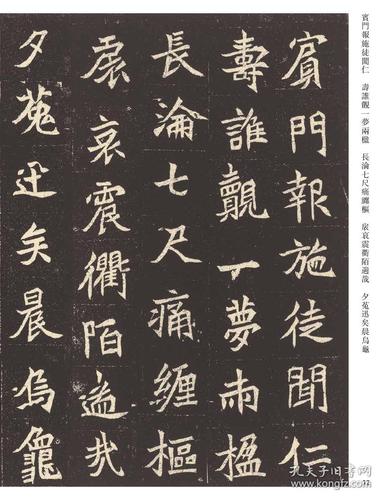 賓門報施徒聞仁 壽誰覿一夢兩楹 長淪七尺痛纏樞 扆哀震衢陌哉 夕菟迅矣晨烏龜
賓門報施徒聞仁
壽誰覿一夢兩楹
長淪七尺痛纏樞
扆哀震衢陌哉
夕菟迅矣晨烏龜
孔夫子旧书网
www.kongfz.com